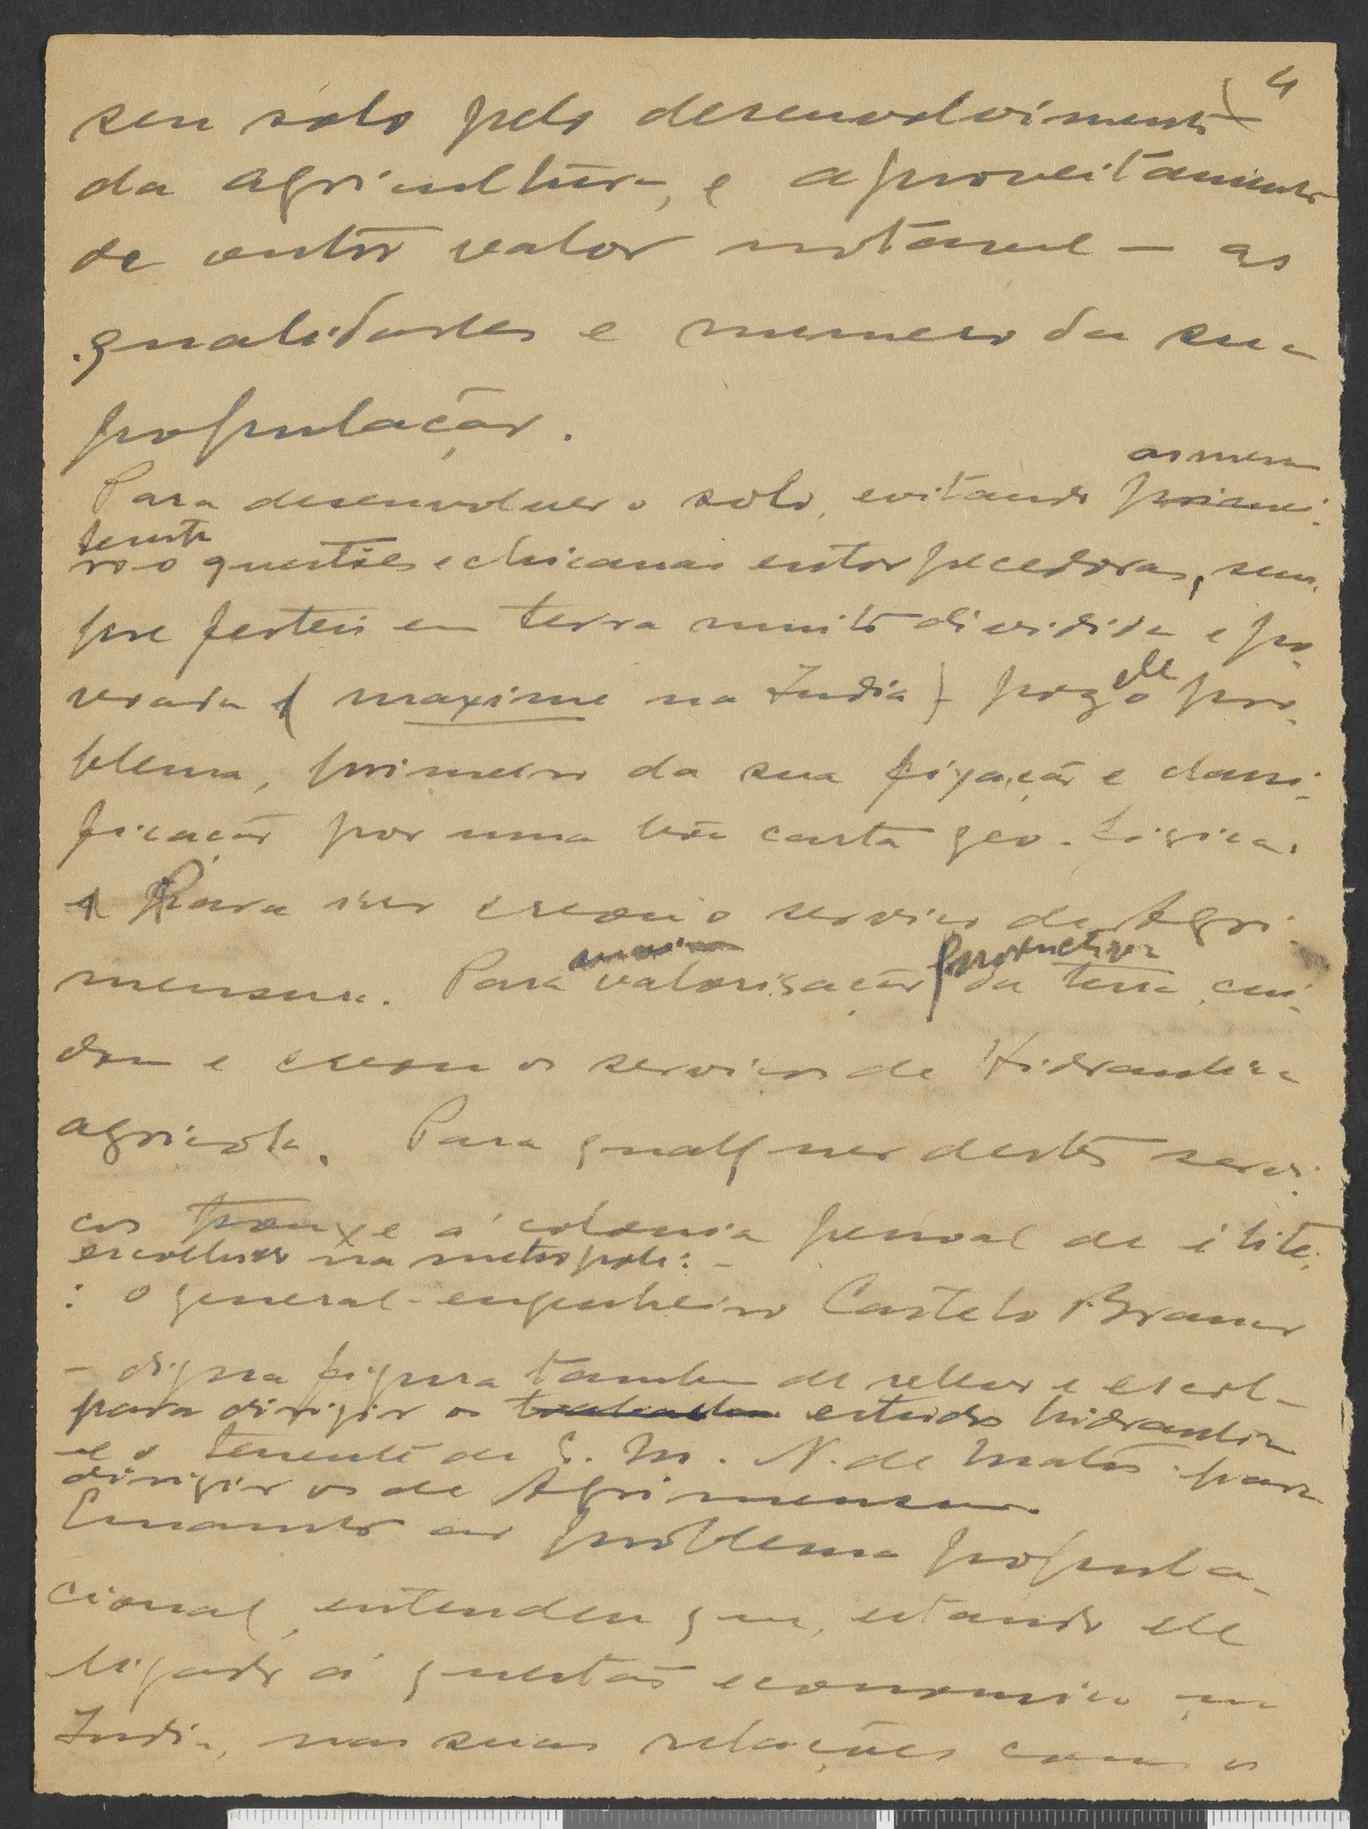 4
seu sólo pelo desenvolvimento
da agricultura, e aproveitamento
de outro valor notavel — as
qualidades e numero da sua
população.
as mesm
Para desenvolver o solo, evitando primei-
ro o questões e chicanas entorpecedoras, sem-
pre ferteis em terra muito dividida e po-
voada (maxime na India) poz elle o pro-
blema, primeiro da sua fixação e classi-
ficação por uma bôa carta geo-logica.
Para isso creou o serviço de Agri-
mensura. Para valorisação productiva da terra, cui-
dou e creou os serviços de Hidraulica
agricola. Para qualquer destes servi-
ços trouxe á colonia pessoal de élite,
escolhido na metropole: -
: o general-engenheiro Castelo Branco
- digna figura tambem de relevo e escol -
para dirigir os estudos hidraulicos
- e o tenente de E. M. N. de Matos para
dirigir os de Agrimensura.
Emquanto ao problema popula-
cional, entendeu que, estando elle
ligado á questão economica na
India, nas suas relações com os